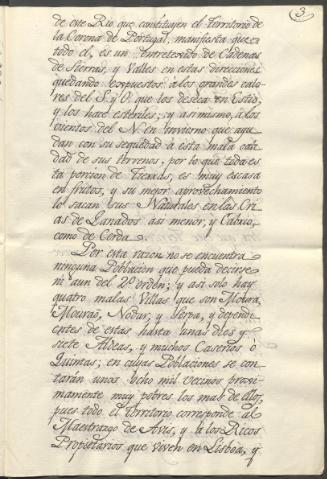 3
de este Rio que constituyen el Territorio de
la Corona de Portugal, manifiesta que en
todo el, es un entretexido de Cadenas
de Sierras, y Valles en estas direcciones
quedando expuestos à los grandes calo-
res del S. y O. que los deseca en Estio,
y los hace esteriles; y asimismo, a los
vientos del N. en Invierno que ayu-
dan con su sequedad à esta mala cali-
dad de sus Terrenos; por lo que toda es-
ta porcion de Tierras, es muy escasa
en frutos, y su mejor aprovechamiento
lo sacan sus Naturales en las Cri-
as de Ganados asi menor, y Cabrio,
como de Cerda.
Por esta razon no se encuentra
ninguna Poblacion que pueda decirse
ni aun del 2º orden; y asi solo hay
quatro malas Villas que son Moura,
Mouraõ, Nodar, y Serpa, y dependi-
entes de estas hasta unas diez y
siete Aldeas, y muchos Caserios ò
Quintas; en cuyas Poblaciones se con-
tarán unos ocho mil vecinos proxi-
mamente muy pobres los mas de ellos,
pues todo el Territorio corresponde al
Maestrazgo de Avis, y à los Ricos
Propietarios que viven en Lisboa, y